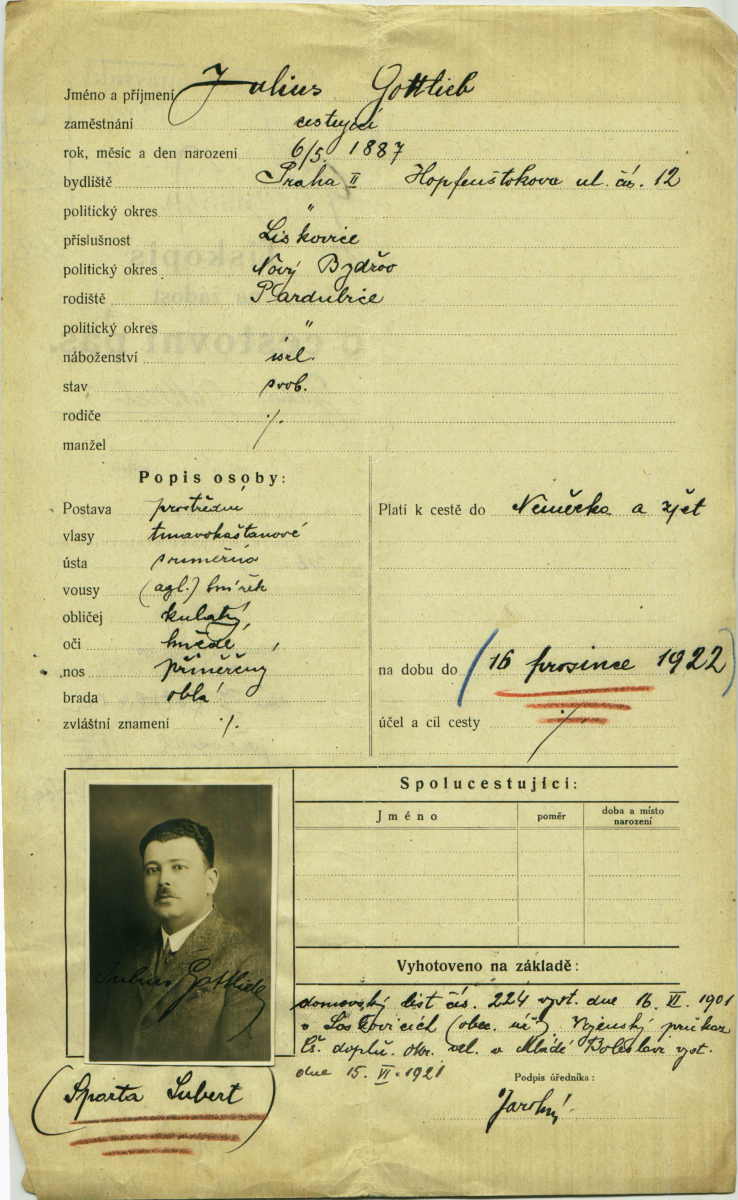 Jméno a příjmení Julius Gottlieb
zaměstnání cestující
rok, měsíc a den narození 6/5. 1887
bydliště Praha II Hopfenštokova ul. čís. 12
politický okres "
příslušnost Liskovice
politický okres Nový Bydžov
rodiště Pardubice
politický okres "
náboženství isrl.
stav svob.
rodiče ./.
manžel
Popis osoby:
Postava prostřední
vlasy tmavokaštanové
ústa souměrná
vousy (agl.) knírek
obličej kulatý
oči hnědé
nos přiměřený
brada oblá
zvláštní znamení ./.
Platí k cestě do Německa a zpět
na dobu do (16 prosince 1922)
účel a cíl cesty ./.
Spolucestující:
Jméno poměr doba a místo narození
Julius Gottlieb
Vyhotoveno na základě:
domovský list čís. 224 vyst. dne 16. VI. 1901
v (obec. úř.) Vojenský průkaz
Čs. doplň. okr. vel. v Mladé Boleslavi vyst.
dne 15. VI. 1921
Podpis úředníka:
(Sparta Šubert)